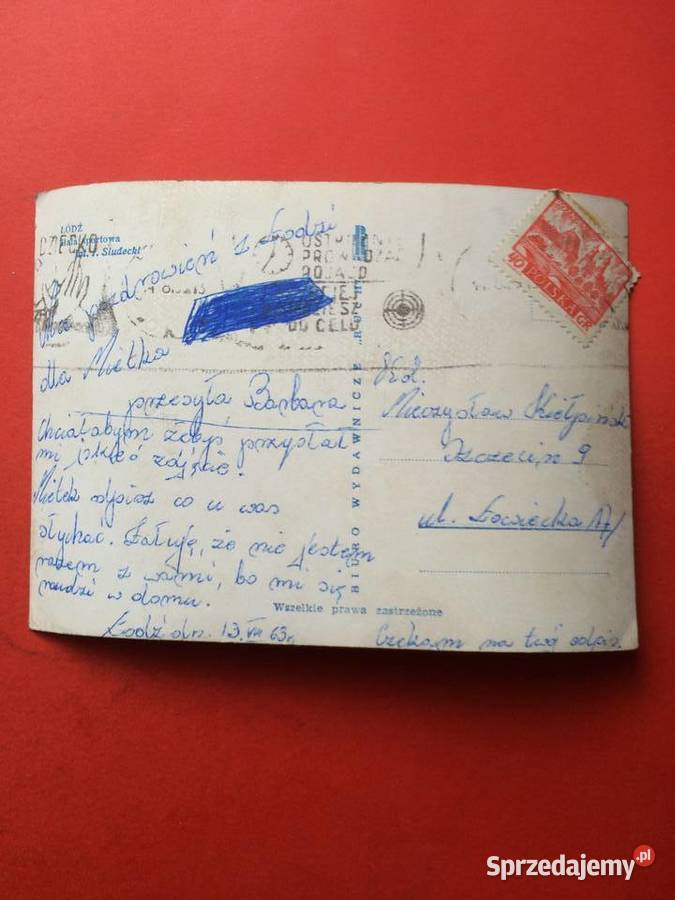 ŁÓDŹ
Hala Sportowa
fot. T. Sludecki
DZIECKO
OSTROŻNIE
PROWADZĄC
POJAZD
DO CELU
40 POLSKA GR
pozdrowień z Łodzi
dla Mietka
przesyła Barbara
Chciałabym żebyś przysłał
mi jakieś zdjęcie.
Mietek odpisz co u was
słychać. Żałuję, że nie jestem
razem z wami, bo mi się
nudzi w domu.
Łódź dn. 13.VII 63r.
BIURO WYDAWNICZE „RUCH"
Kol.
Mieczysław
Szczecin 9
ul.
Wszelkie prawa zastrzeżone
Czekam na twój odpis.
Sprzedajemy.pl